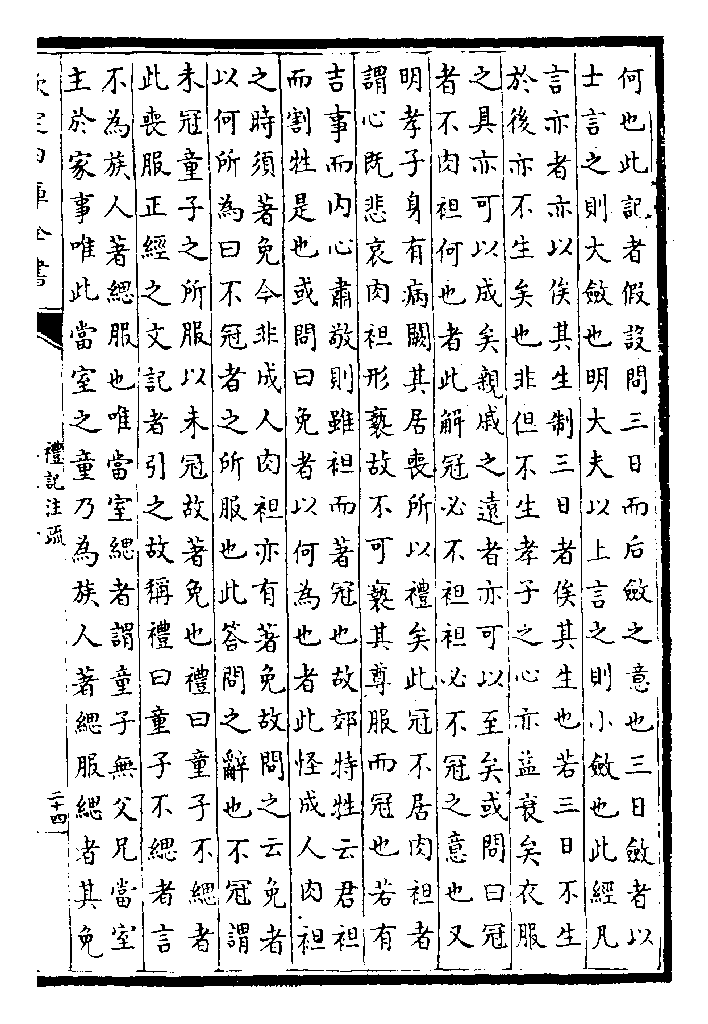 何也此記者假設問三日而后斂之意也三日斂者以
士言之則大斂也明大夫以上言之則小斂也此經凡
言亦者亦以俟其生制三日者俟其生也若三日不生
於後亦不生矣也非但不生孝子之心亦益衰矣衣服
之具亦可以成矣親戚之遠者亦可以至矣或問曰冠
者不肉袒何也者此解冠必不袒袒必不冠之意也又
明孝子身有病闕其居喪所以禮矣此冠不居肉袒者
謂心既悲哀肉袒形褻故不可褻其尊服而冠也若有
吉事而内心肅敬則雖袒而著冠也故郊特牲云君袒
而割牲是也或問曰免者以何為也者此怪成人肉袒
之時須著免今非成人肉袒亦有著免故問之云免者
以何所為曰不冠者之所服也此答問之辭也不冠謂
未冠童子之所服以未冠故著免也禮曰童子不緦者
此喪服正經之文記者引之故稱禮曰童子不緦者言
不為族人著緦服也唯當室緦者謂童子無父兄當室
主於家事唯此當室之童乃為族人著緦服緦者其免
欽定四庫全書
禮記注疏
二十四